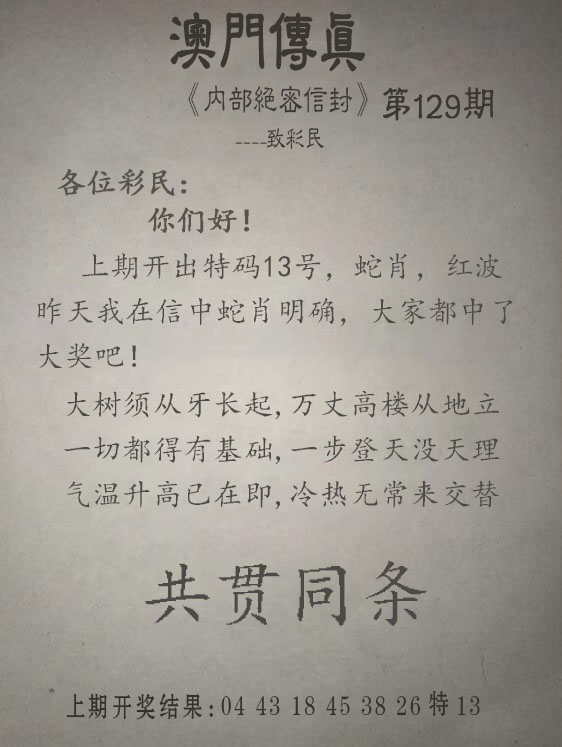 澳門傳眞
《内部絕密信封》第129期
----致彩民
各位彩民：
你们好！
上期开出特码13号，蛇肖，红波
昨天我在信中蛇肖明确，大家都中了
大奖吧！
大树须从牙长起,万丈高楼从地立
一切都得有基础,一步登天没天理
气温升高已在即,冷热无常来交替
共贯同条
上期开奖结果:04 43 18 45 38 26特13